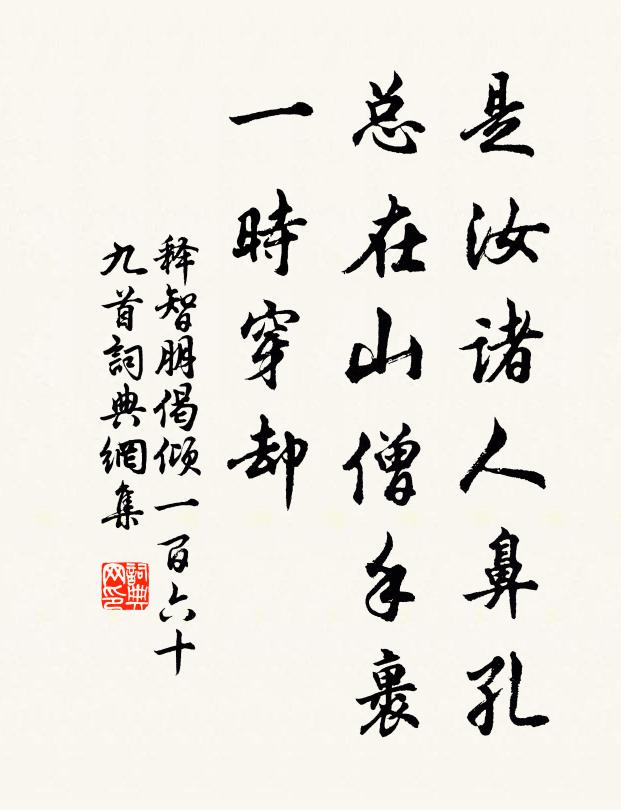 是汝诸人鼻孔
总在山僧手裹
一時穿却
释智朋偈倾一百六十
九首詞典網集
詞典
网印